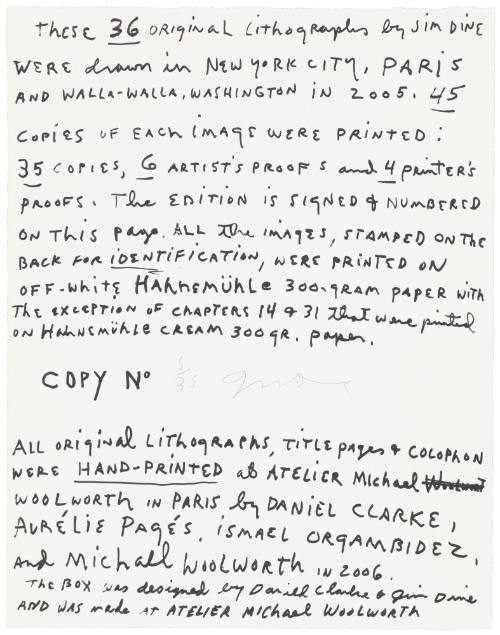 These 36 ORIGINAL Lithographs by JIM DINE
WERE drawn in NEW YORK CITY, PARIS
AND WALLA-WALLA, WASHINGTON IN 2005. 45
COPIES OF EACH IMAGE WERE PRINTED:
35 COPIES, 6 ARTIST'S PROOFS and 4 PRINTER'S
PROOFS. The EDITION IS SIGNED & NUMBERED
ON THIS page. ALL the IMAGES, STAMPED ON THE
BACK FOR IDENTIFICATION, WERE PRINTED ON
OFF-WHITE HAHNEMÜHLE 300-GRAM PAPER WITH
THE EXCEPTION OF CHAPTERS 14 & 31 that were printed
ON HAHNEMÜHLE CREAM 300 GR. paper.
COPY No 5/35
ALL ORIGINAL LITHOGRAPHS, TITLE pages & COLOPHON
WERE HAND-PRINTED at ATELIER Michael Woolwort
WOOLWORTH IN PARIS by DANIEL CLARKE,
AURÉLIE PAGÉS, ISMAEL ORGAMBIDEZ,
and Michael WOOLWORTH IN 2006.
THE BOX was designed by Daniel Clarke & Jim Dine
AND WAS made AT ATELIER MICHAEL WOOLWORTH